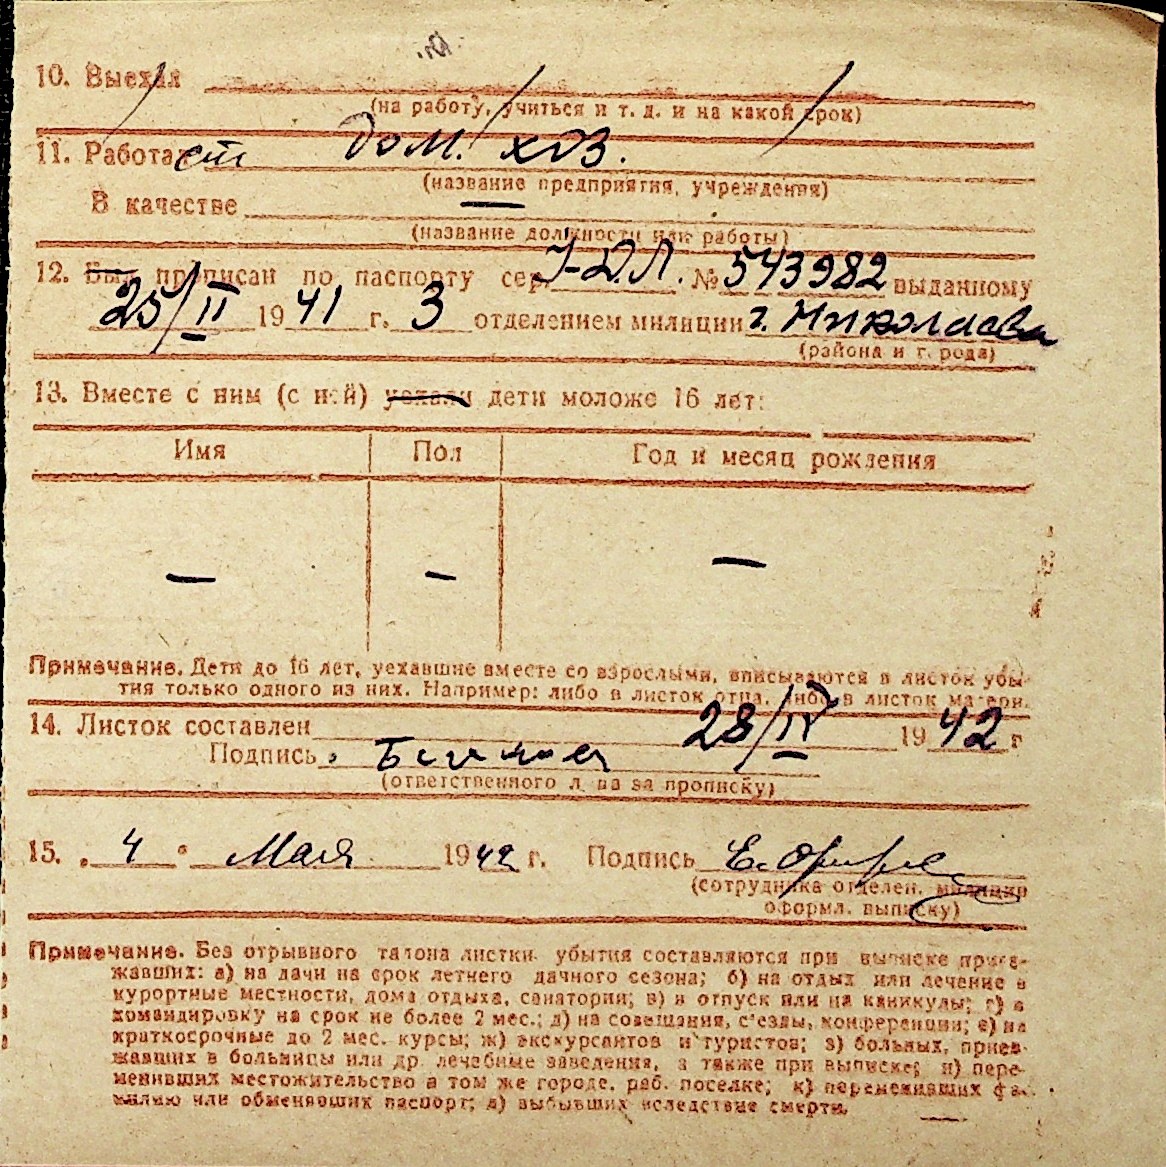 10. Выехал
(на работу, учиться и т. д. и на какой срок)
11. Работает дом. хоз.
(название предприятия, учреждения)
В качестве
(название должности или работы)
12. Был прописан по паспорту сер. I-ДЛ. № 543982 выданному
25/II 1941 г. 3 отделением милиции г. Николаева
(района и города)
13. Вместе с ним (с ней) уехали дети моложе 16 лет:
Имя Пол Год и месяц рождения
— — —
Примечание. Дети до 16 лет, уехавшие вместе со взрослыми, вписываются в листок убы-
тия только одного из них. Например: либо в листок отца, либо в листок матери.
14. Листок составлен 28/IV 1942 г
Подпись
(ответственного лица за прописку)
15. „ 4 " Мая 1942 г. Подпись
(сотрудника отделен. милиции
оформл. выписку)
Примечание. Без отрывного талона листки убытия составляются при выписке приез-
жавших: а) на дачи на срок летнего дачного сезона; б) на отдых или лечение в
курортные местности, дома отдыха, санатории; в) в отпуск или на каникулы; г) в
командировку на срок не более 2 мес.; д) на совещания, с'езды, конференции; е) на
краткосрочные до 2 мес. курсы; ж) экскурсантов и туристов; з) больных, приез-
жавших в больницы или др. лечебные заведения, а также при выписке; и) пере-
менивших местожительство в том же городе, раб. поселке; к) переменивших фа-
милию или обменявших паспорт; л) выбывших вследствие смерти.